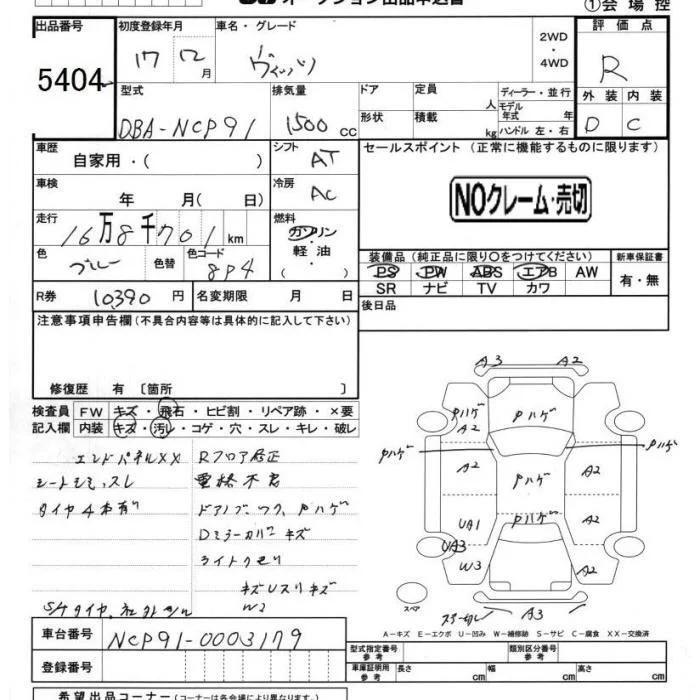 オークション出品申込書
①会場控
出品番号
初度登録年月
車名・グレード
評価点
5404
17
12
月
ヴィッツ
2WD
・
4WD
R
型式
排気量
ドア
定員
人
ディーラー・並行
モデル年式
年
外装
内装
DBA-NCP91
1500
cc
形状
積載
kg
ハンドル 左・右
D
C
車歴
自家用・(
)
シフト
AT
セールスポイント(正常に機能するものに限ります)
車検
年
月(
日)
冷房
AC
NOクレーム・売切
走行
16万8千701
km
燃料
ガソリン
軽油
・
色
ブルー
色替
色コード
8P4
装備品(純正品に限り○をつけてください)
新車保証書
PS
PW
ABS
エアB
AW
有・無
SR
ナビ
TV
カワ
R券
10,390
円
名変期限
月
日
後日品
注意事項申告欄(不具合内容等は具体的に記入して下さい)
修復歴 有 〔箇所
〕
検査員
記入欄
FW
キズ・飛石・ヒビ割・リペア跡・×要
内装
キズ・汚レ・コゲ・穴・スレ・キレ・破レ
エンドパネルXX
Rフロア修正
タイヤ4本有り
ドアノブ
Pハゲ
Dミラーカバーキズ
ライトクモリ
キズUスリキズ
W2
A3
A2
Pハゲ
A2
Pハゲ
Pハゲ
Pハゲ
A2
Pハゲ
A2
UA1
Pハゲ
A2
UA3
W3
A2
スペア
A3
A-キズ E-エクボ U-凹み W-補修跡 S-サビ C-腐食 XX-交換済
車台番号
NCP91-0003179
型式指定番号
参考
類別区分番号
参考
登録番号
車庫証明用
参考
長さ
cm
幅
cm
高さ
cm
希望出品コーナー(コーナーは各会場により異なります)